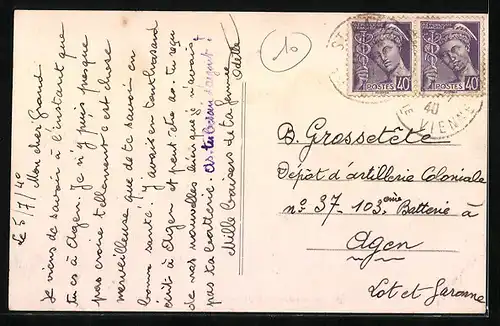 Le 5/7/40
Mon cher Grand.
Je viens de savoir à l'instant que
tu es à Agen. Je n'y puis presque
pas croire tellement c'est chose
merveilleuse que de te savoir en
bonne santé. J'avais en
écrit à Agen et peut être as-tu reçu
de mes nouvelles bien que je n'avais
pas ta batterie. As-tu besoin d'argent?
Mille baisers de ta femme
Odette
10
POSTES
40
POSTES
40
40
VIENNE
B. Grossetête
Dépot d'artillerie Coloniale
n° 37 - 103ème Batterie à
Agen
Lot et Garonne